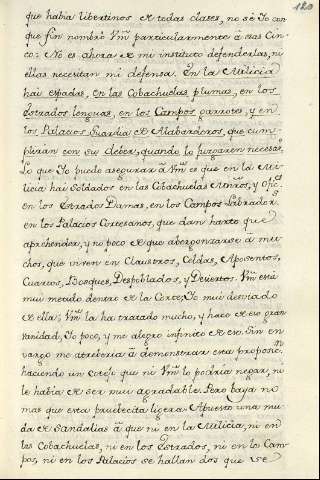 120
que havia libertinos de todas clases, no se Yo con
que fin nombrò Vm̃ particularmente à esas Cin-
co: No es ahora de mi instituto defenderlas, ni
ellas necesitan mi defensa. En la Milicia
hai espadas, en las Cobachuelas plumas, en los
Estrados lenguas, en los Campos garrotes, y en
los Palacios Guardia de Alabarderos, que cum-
pliràn con su deber, quando lo juzgaren necesaº.
Lo que Yo puedo asegurar à Vm̃ es que en la Mi-
licia hai Soldados en las Cobachuelas Minros, y Ofics.
en los Estrados Damas, en los Campos Labradores
en los Palacios Cortesanos, que dan harto que
aprehender, y no poco de que abergonzarse à mu-
chos, que viven en Claustros, Celdas, Aposentos,
Cuartos, Bosques, Despoblados, y Desiertos. Vm̃ està
mui metido dentro de la Corte, Yo mui desviado
de ella; Vm̃ la ha tratado mucho, y hace de eso gran
vanidad, Yo poco, y me alegro infinito de eso. Sin em
vargo me atreberia à demonstrar esta proposicn.
haciendo un cotejo que ni Vm̃ lo podria negar, ni
le havia de ser mui agradable. Pero baya no
mas que esta pruebecita ligera. Apuesto una mu-
da de Sandalias à que ni en la Milicia, ni en
las Cobachuelas, ni en los Estrados, ni en los Cam-
pos, ni en los Palacios se hallan dos que se